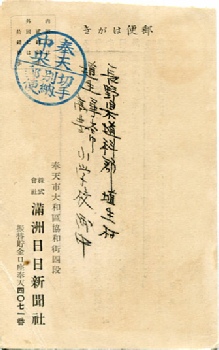 郵便はがき
奉天中央
切手別納郵便
長野県埴科郡埴生村
埴生
小学校御中
奉天市大和區協和街四段
株式會社 滿洲日日新聞社
振替貯金口座奉天四〇七一番